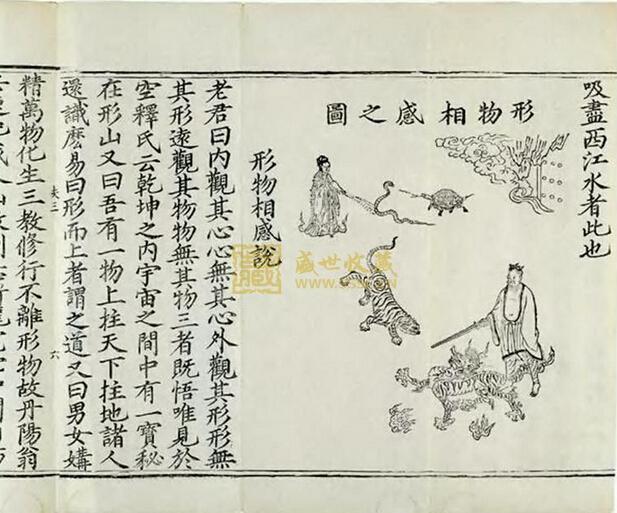 吸盡西江水者此也
形物相感之圖
形物相感說
老君曰內觀其心心無其心外觀其形形無
其形遠觀其物物無其物三者既悟唯見於
空釋氏云乾坤之內宇宙之間中有一寶秘
在形山又曰吾有一物上拄天下拄地諸人
還識麽易曰形而上者謂之道又曰男女媾
夫三 六
精萬物化生三教修行不離形物故丹陽翁
盛世收藏